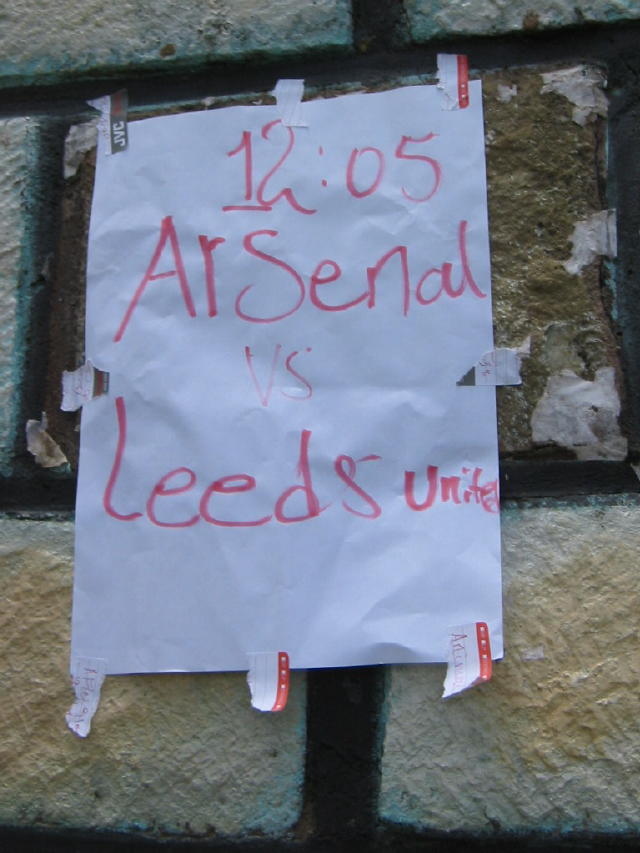 12:05
Arsenal
vs
Leeds United
JVC